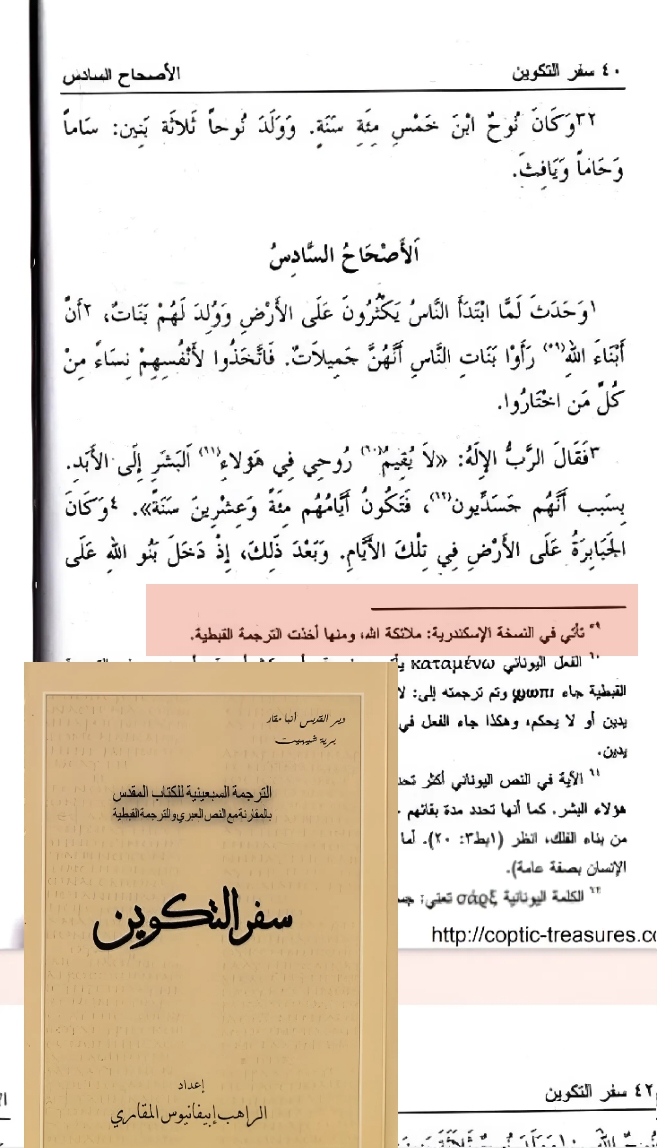 ٤٠ سفر التكوين
الأصحاح السادس
٣٢وَكَانَ نُوحٌ ابْنَ خَمْسِ مِئَةِ سَنَةٍ. وَوَلَدَ نُوحاً ثَلاثَة بَنِين: سَاماً
وَحَاماً وَيَافِثَ.
اَلأَصْحَاحُ السَّادِسُ
١وَحَدَثَ لَمَّا ابْتَدَأَ النَّاسُ يَكْثُرُونَ عَلَى الأَرْضِ وَوُلِدَ لَهُمْ بَنَاتٌ، ٢أَنَّ
أَبْنَاءَ اللهِ(٥٩) رَأَوْا بَنَاتِ النَّاسِ أَنَّهُنَّ جَمِيلاَتٌ. فَاتَّخَذُوا لأَنْفُسِهِمْ نِسَاءً مِنْ
كُلِّ مَن اخْتَارُوا.
٣فَقَالَ الرَّبُّ الإِلَهُ: «لاَ يُقِيمُ(٦٠) رُوحِي فِي هَؤلاءِ(٦١) اَلبَشَرِ إِلَى الأَبَدِ.
بِسَبب أَنَّهُم جَسَدِّيون(٦٢)، فَتَكُونُ أَيَّامُهُم مِئَةً وَعِشْرِينَ سَنَةً». ٤وَكَانَ
الجَبَابِرَةُ عَلَى الأَرْضِ فِي تِلْكَ الأَيَّامِ. وَبَعْدَ ذَلِكَ، إِذْ دَخَلَ بَنُو اللهِ عَلَى
٥٩ تأتي في النسخة الإسكندرية: ملائكة الله، ومنها أخذت الترجمة القبطية.
٦٠ الفعل اليوناني καταμένω
القبطية جاء ϣⲱⲡⲓ وتم ترجمته إلى: لا
يدين أو لا يحكم، وهكذا جاء الفعل في
يدين.
٦١ الآية في النص اليوناني أكثر تحد
هؤلاء البشر. كما أنها تحدد مدة بقائهم
من بناء الفلك، انظر (١بط٣: ٢٠). أما
الإنسان بصفة عامة).
٦٢ الكلمة اليونانية σάρξ تعني: جس
http://coptic-treasures.co
دير القديس أنبا مقار
برية شيهيت
الترجمة السبعينية للكتاب المقدس
بالمقارنة مع النص العبري والترجمة القبطية
سفر التكوين
إعداد
الراهب إبيفانيوس المقاري
٤٢ سفر التكوين